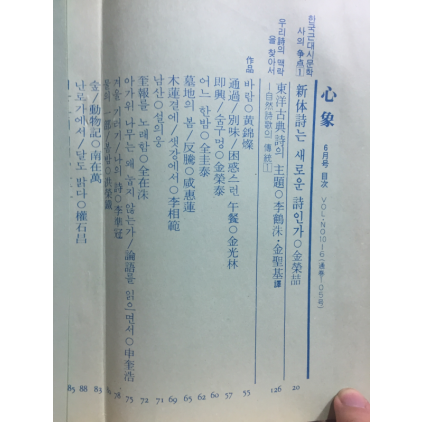 心象
6月号 目次
VOL·NO 10-6 (通巻105号)
한국근대시문학사의 争点 ①
新体詩는 새로운 詩인가 ○ 金榮喆 20
우리詩의 맥락을 찾아서
東洋古典詩의 主題 ○ 李鶴洙·金聖基 譯 126
—自然詩歌의 傳統 ①
作品
바람 ○ 黃錦燦 55
通過 / 別味 / 困惑스런 午餐 ○ 金光林 57
即興 / 숨구멍 ○ 金榮泰 60
어느 한밤 ○ 全圭泰 62
墓地의 봄 / 反騰 ○ 咸惠蓮 63
木蓮곁에 / 샛강에서 ○ 李相範 65
남산 ○ 설의웅 69
奎報를 노래함 ○ 全在洙 71
아가위 나무는 왜 늙지 않는가 / 論語를 읽으면서 ○ 申奎浩 72
/ 나의 詩 ○ 李華冠
金 / 動物記 ○ 南在萬
난로가에서 / 달도 밝다 ○ 權石昌